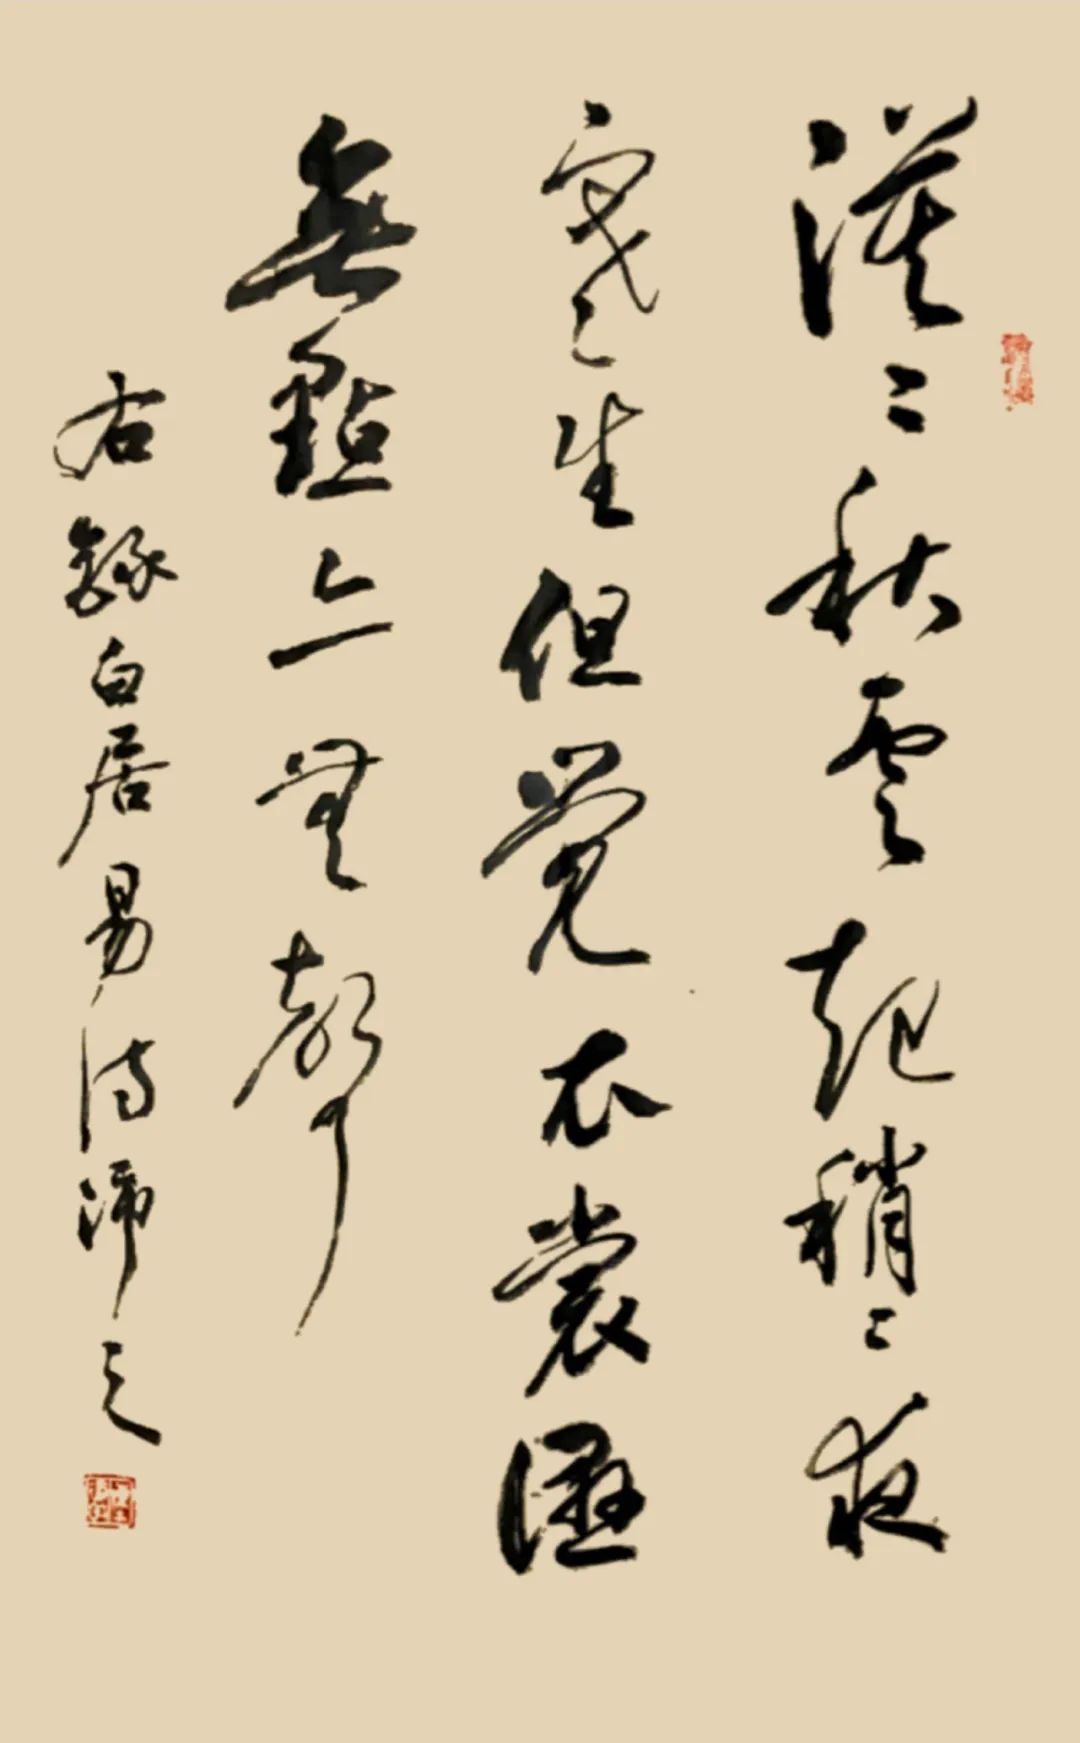 漠〻秋雲起稍〻夜
寒生但覺衣裳濕
無點亦無聲
右錄白居易詩沛之